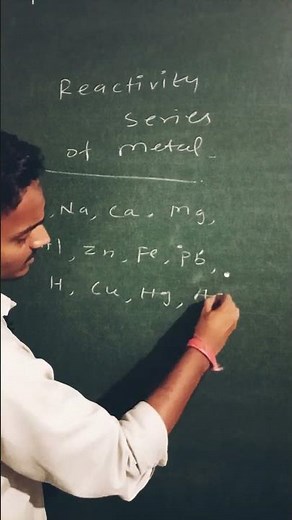 Reactivity
series
of metal
, Na, Ca, Mg,
Zn, Fe, Pb,
H, Cu, Hg,